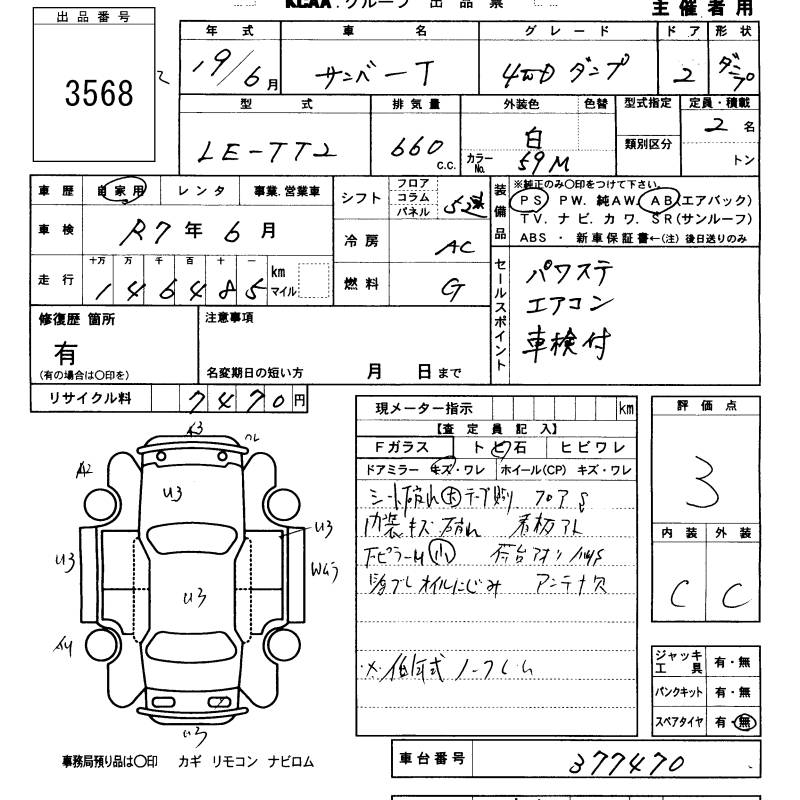 KCAA グループ 出品票
主催者用
出品番号
3568
年式 車名 グレード ドア 形状
19/6月 サンバーT 4WD ダンプ 2 ダンプ
型式 排気量 外装色 色替 型式指定 定員・積載
LE-TT2 660 c.c. 白 類別区分 2名
カラーNo. 59M トン
車歴 自家用 レンタ 事業.営業車 シフト フロア コラム パネル 5速
装備品 ※純正のみ○印をつけて下さい.
PS PW. 純AW. AB(エアバック)
TV. ナビ. カワ. SR(サンルーフ)
ABS ・ 新車保証書←(注) 後日送りのみ
車検 R7年6月 冷房 AC
走行 十万 万 千 百 十 一 km マイル
146485
燃料 G
セールスポイント
パワステ
エアコン
車検付
修復歴 箇所
有
(有の場合は○印を)
注意事項
名変期日の短い方 月 日まで
リサイクル料 7470円
現メーター指示 km
【査定員記入】
Fガラス トビ石 ヒビワレ
ドアミラー キズ・ワレ ホイール(CP) キズ・ワレ
シート破れ大テープ貼り フロアS
内装キズ 破れ 看板アト
FピラーM小 荷台アオリ
オイルにじみ アンテナ欠
※低年式 ノークレーム
評価点
3
内装 外装
C C
ジャッキ工具 有・無
パンクキット 有・無
スペアタイヤ 有・無
A3
A2
U3
U3
U3
U3
U3
事務局預り品は○印 カギ リモコン ナビロム
車台番号 377470